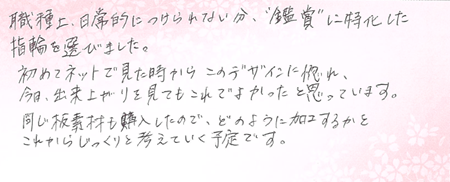 職種上、日常的につけられない分、“鑑賞”に特化した
指輪を選びました。
初めてネットで見た時からこのデザインに惚れ、
今日、出来上がりを見てもこれでよかったと思っています。
同じ板素材も購入したので、どのように加工するかを
これからじっくりと考えていく予定です。